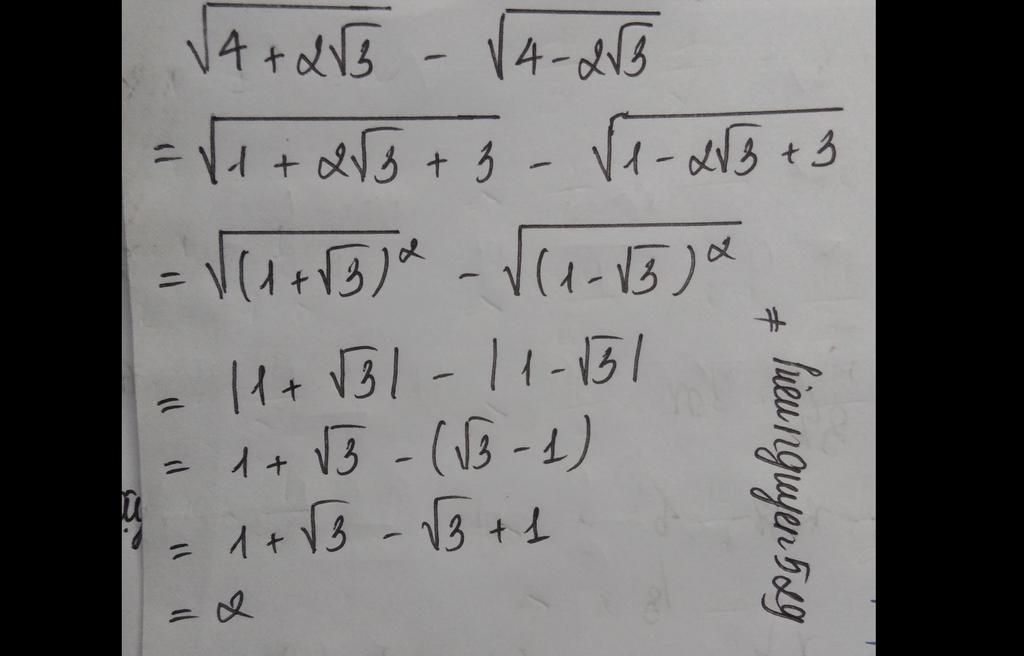 √(4 + 2√3) - √(4 - 2√3)
= √(1 + 2√3 + 3) - √(1 - 2√3 + 3)
= √((1 + √3)²) - √((1 - √3)²)
= |1 + √3| - |1 - √3|
= 1 + √3 - (√3 - 1)
= 1 + √3 - √3 + 1
= 2
# hieunguyen529